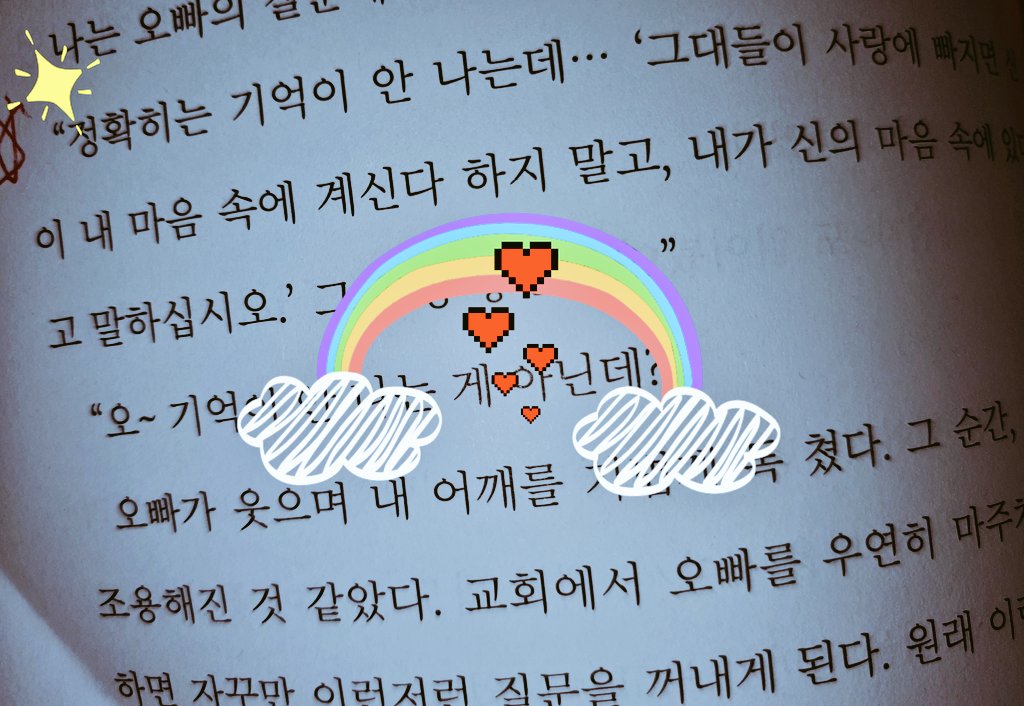 나는 오빠의 질문에
“정확히는 기억이 안 나는데… ‘그대들이 사랑에 빠지면 신
이 내 마음 속에 계신다 하지 말고, 내가 신의 마음 속에 있다
고 말하십시오.’ ”
“오~ 게 아닌데?
오빠가 웃으며 내 어깨를 쳤다. 그 순간,
조용해진 것 같았다. 교회에서 오빠를 우연히
하면 자꾸만 이런저런 질문을 꺼내게 된다. 원래